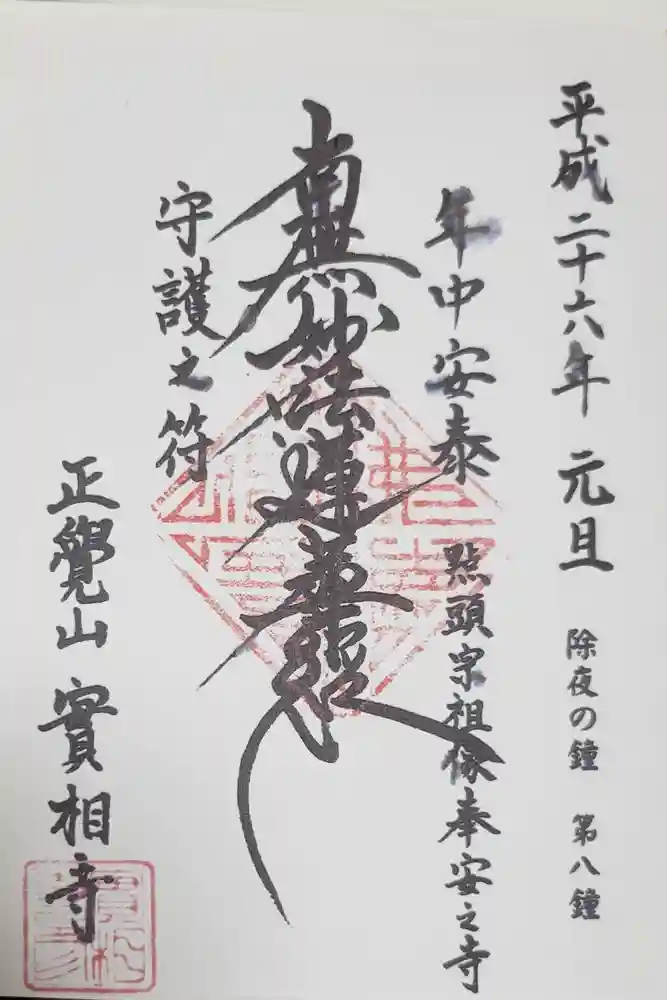 平成二十六年 元旦 除夜の鐘 第八鐘
年中安泰 点頭宗祖像奉安之寺
南無妙法蓮華経
守護之符
正覺山 實相寺